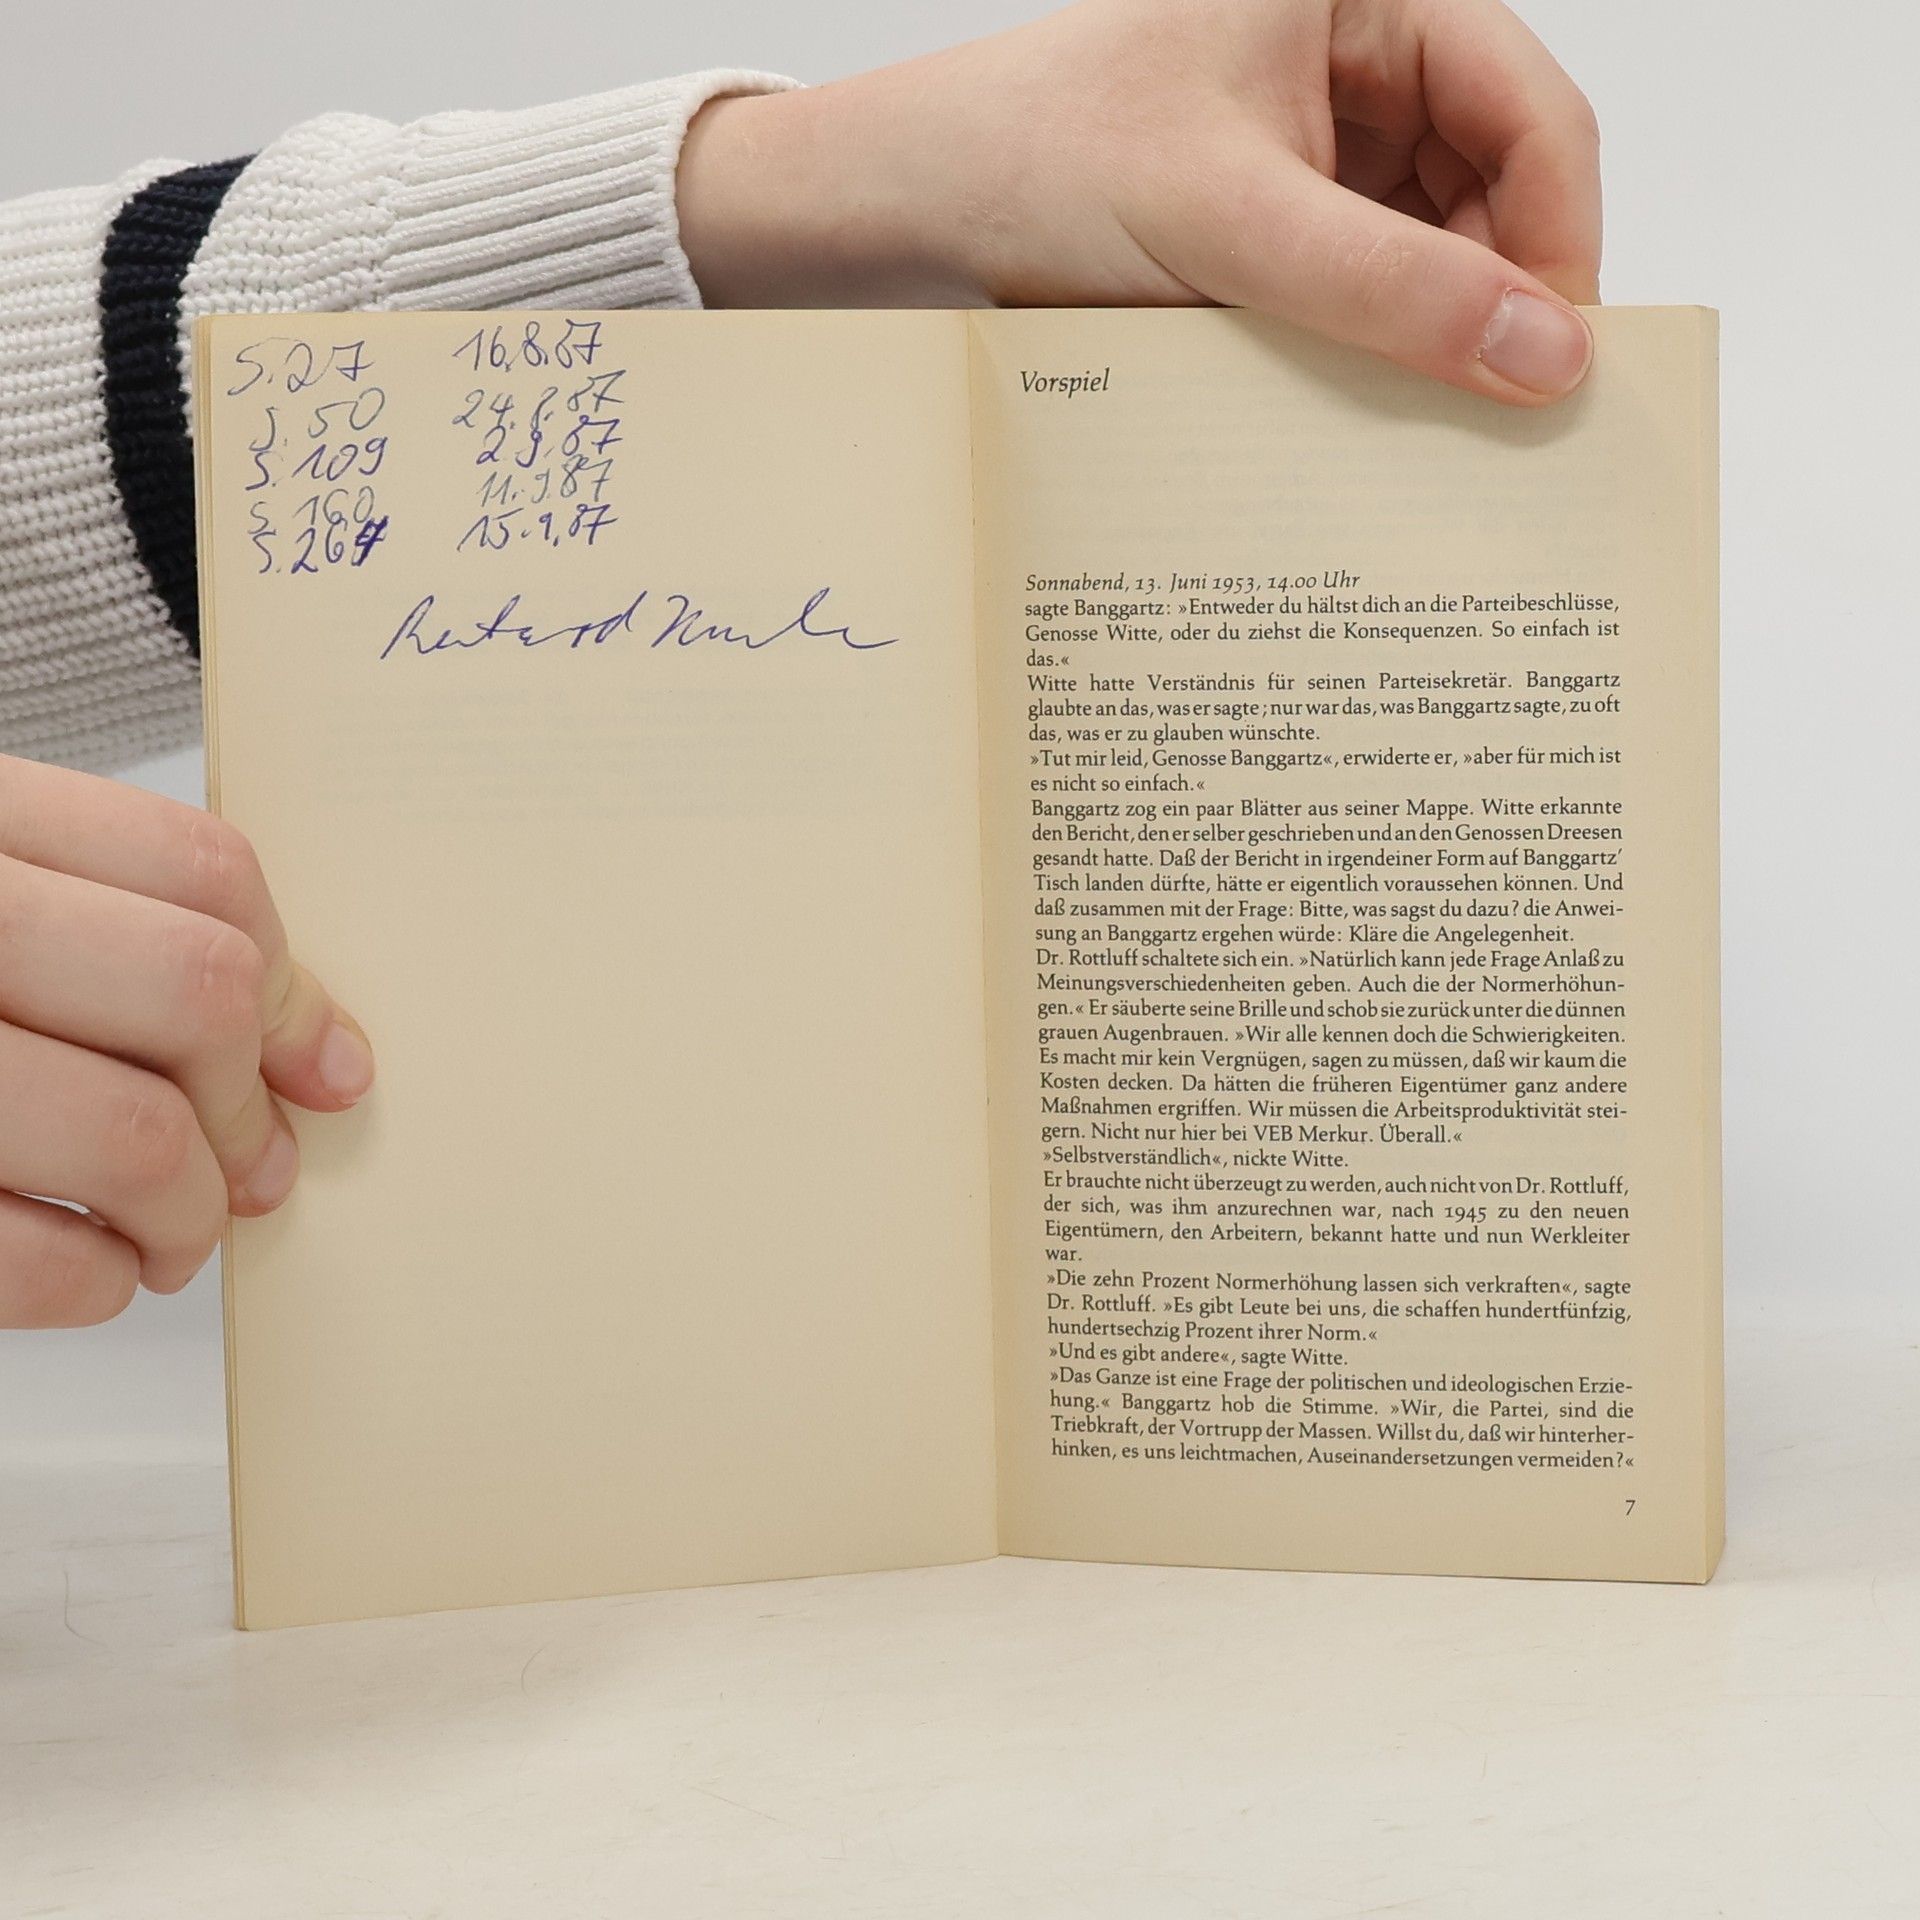 S. 27 16.8.87
S. 50 24.8.87
S. 109 2.9.87
S. 160 11.9.87
S. 264 15.9.87
Vorspiel
Sonnabend, 13. Juni 1953, 14.00 Uhr
sagte Banggartz: »Entweder du hältst dich an die Parteibeschlüsse,
Genosse Witte, oder du ziehst die Konsequenzen. So einfach ist
das.«
Witte hatte Verständnis für seinen Parteisekretär. Banggartz
glaubte an das, was er sagte; nur war das, was Banggartz sagte, zu oft
das, was er zu glauben wünschte.
»Tut mir leid, Genosse Banggartz«, erwiderte er, »aber für mich ist
es nicht so einfach.«
Banggartz zog ein paar Blätter aus seiner Mappe. Witte erkannte
den Bericht, den er selber geschrieben und an den Genossen Dreesen
gesandt hatte. Daß der Bericht in irgendeiner Form auf Banggartz’
Tisch landen dürfte, hätte er eigentlich voraussehen können. Und
daß zusammen mit der Frage: Bitte, was sagst du dazu? die Anwei-
sung an Banggartz ergehen würde: Kläre die Angelegenheit.
Dr. Rottluff schaltete sich ein. »Natürlich kann jede Frage Anlaß zu
Meinungsverschiedenheiten geben. Auch die der Normerhöhun-
gen.« Er säuberte seine Brille und schob sie zurück unter die dünnen
grauen Augenbrauen. »Wir alle kennen doch die Schwierigkeiten.
Es macht mir kein Vergnügen, sagen zu müssen, daß wir kaum die
Kosten decken. Da hätten die früheren Eigentümer ganz andere
Maßnahmen ergriffen. Wir müssen die Arbeitsproduktivität stei-
gern. Nicht nur hier bei VEB Merkur. Überall.«
»Selbstverständlich«, nickte Witte.
Er brauchte nicht überzeugt zu werden, auch nicht von Dr. Rottluff,
der sich, was ihm anzurechnen war, nach 1945 zu den neuen
Eigentümern, den Arbeitern, bekannt hatte und nun Werkleiter
war.
»Die zehn Prozent Normerhöhung lassen sich verkraften«, sagte
Dr. Rottluff. »Es gibt Leute bei uns, die schaffen hundertfünfzig,
hundertsechzig Prozent ihrer Norm.«
»Und es gibt andere«, sagte Witte.
»Das Ganze ist eine Frage der politischen und ideologischen Erzie-
hung.« Banggartz hob die Stimme. »Wir, die Partei, sind die
Triebkraft, der Vortrupp der Massen. Willst du, daß wir hinterher-
hinken, es uns leichtmachen, Auseinandersetzungen vermeiden?«
7